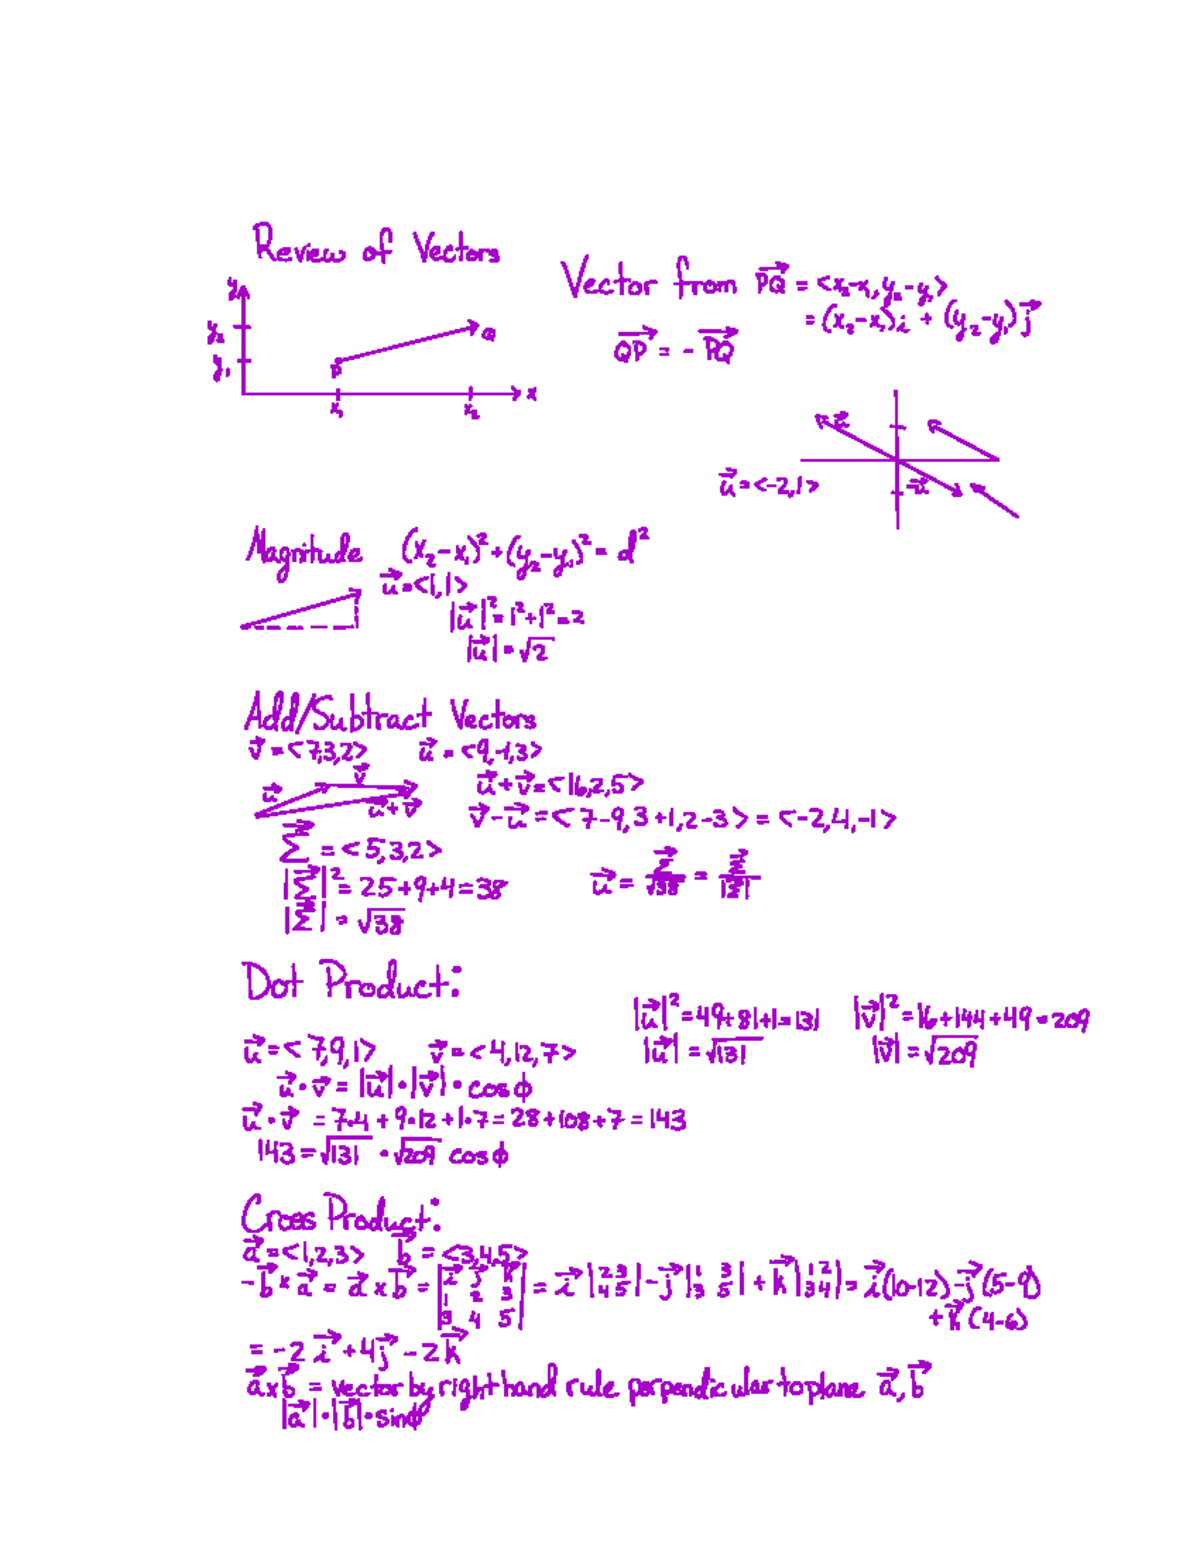 Review of Vectors
y
y₂
y₁
P
Q
x₁
x₂
x
Vector from PQ⃗ = <x₂-x₁, y₂-y₁>
= (x₂-x₁)i + (y₂-y₁)j⃗
QP⃗ = - PQ⃗
u⃗
-u⃗
u⃗ = <-2,1>
Magnitude (x₂-x₁)²+(y₂-y₁)² = d²
u⃗ = <1,1>
|u⃗|² = 1²+1² = 2
|u⃗| = √2
Add/Subtract Vectors
v⃗ = <7,3,2> u⃗ = <9,-1,3>
u⃗
v⃗
u⃗+v⃗
u⃗+v⃗ = <16,2,5>
v⃗-u⃗ = <7-9, 3+1, 2-3> = <-2,4,-1>
Σ⃗ = <5,3,2>
|Σ⃗|² = 25+9+4 = 38
|Σ⃗| = √38
u⃗ = Σ⃗/√38 = Σ⃗/|Σ⃗|
Dot Product:
|u⃗|² = 49+81+1 = 131 |v⃗|² = 16+144+49 = 209
|u⃗| = √131 |v⃗| = √209
u⃗ = <7,9,1> v⃗ = <4,12,7>
u⃗·v⃗ = |u⃗|·|v⃗|·cosϕ
u⃗·v⃗ = 7·4 + 9·12 + 1·7 = 28+108+7 = 143
143 = √131 · √209 cosϕ
Cross Product:
a⃗ = <1,2,3> b⃗ = <3,4,5>
-b⃗ × a⃗ = a⃗ × b⃗ = |i⃗ j⃗ k⃗; 1 2 3; 3 4 5| = i⃗ |2 3; 4 5| - j⃗ |1 3; 3 5| + k⃗ |1 2; 3 4| = i⃗(10-12) - j⃗(5-9)
+ k⃗(4-6)
= -2i⃗ + 4j⃗ - 2k⃗
a⃗×b⃗ = vector by right hand rule perpendicular to plane a⃗, b⃗
|a⃗|·|b⃗|·sinϕ